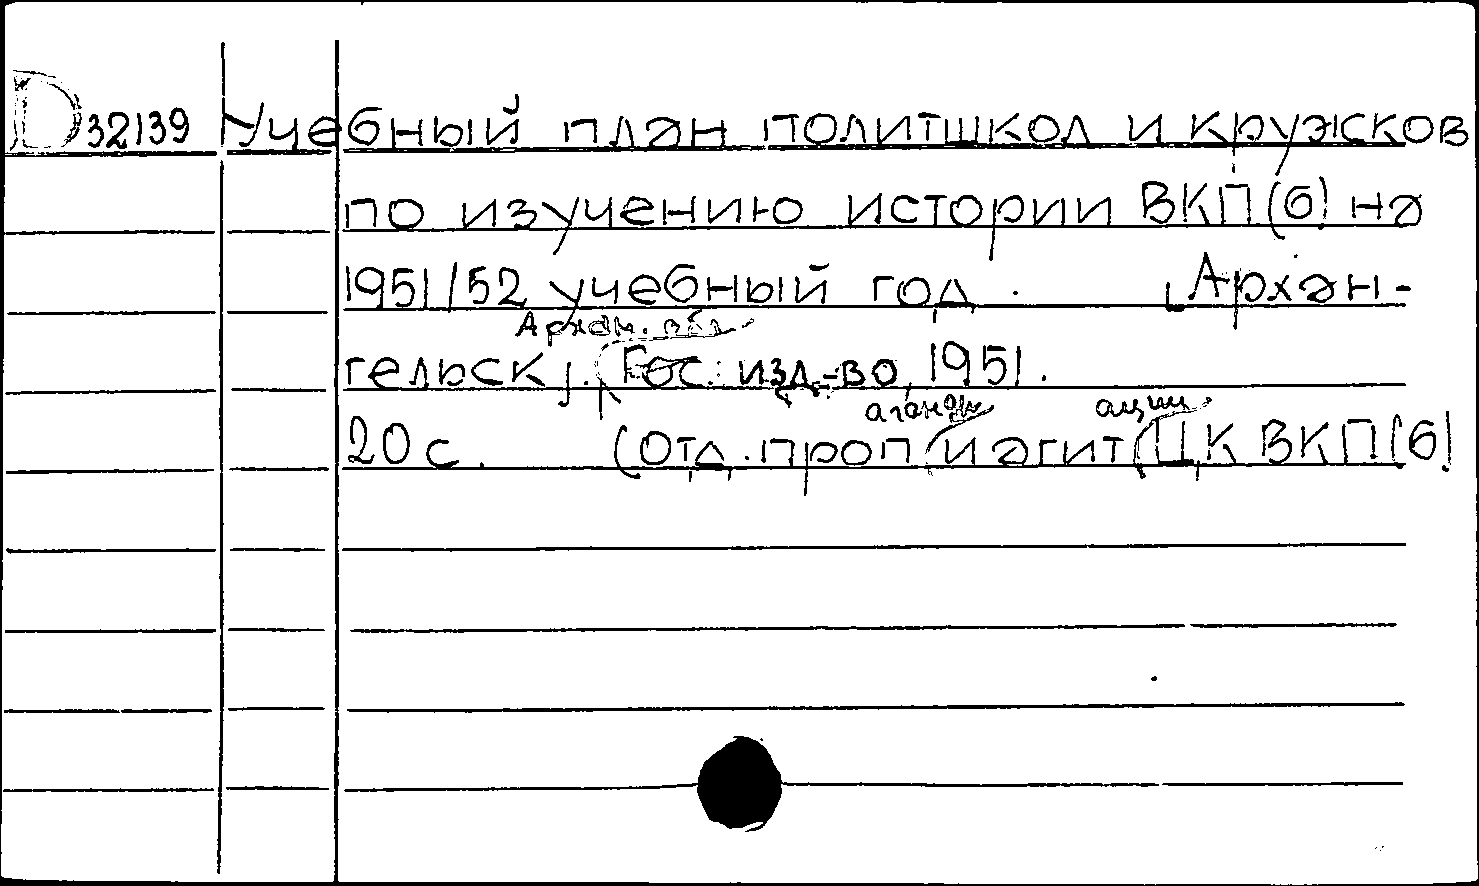 D 32139 Учебный план политшкол и кружков
по изучению истории ВКП(б) на
1951/52 учебный год. Архан-
Архан. обл.
гельск, Гос. изд-во, 1951.
аганды ации
20 с. (Отд. проп и агит ЦК ВКП(б)